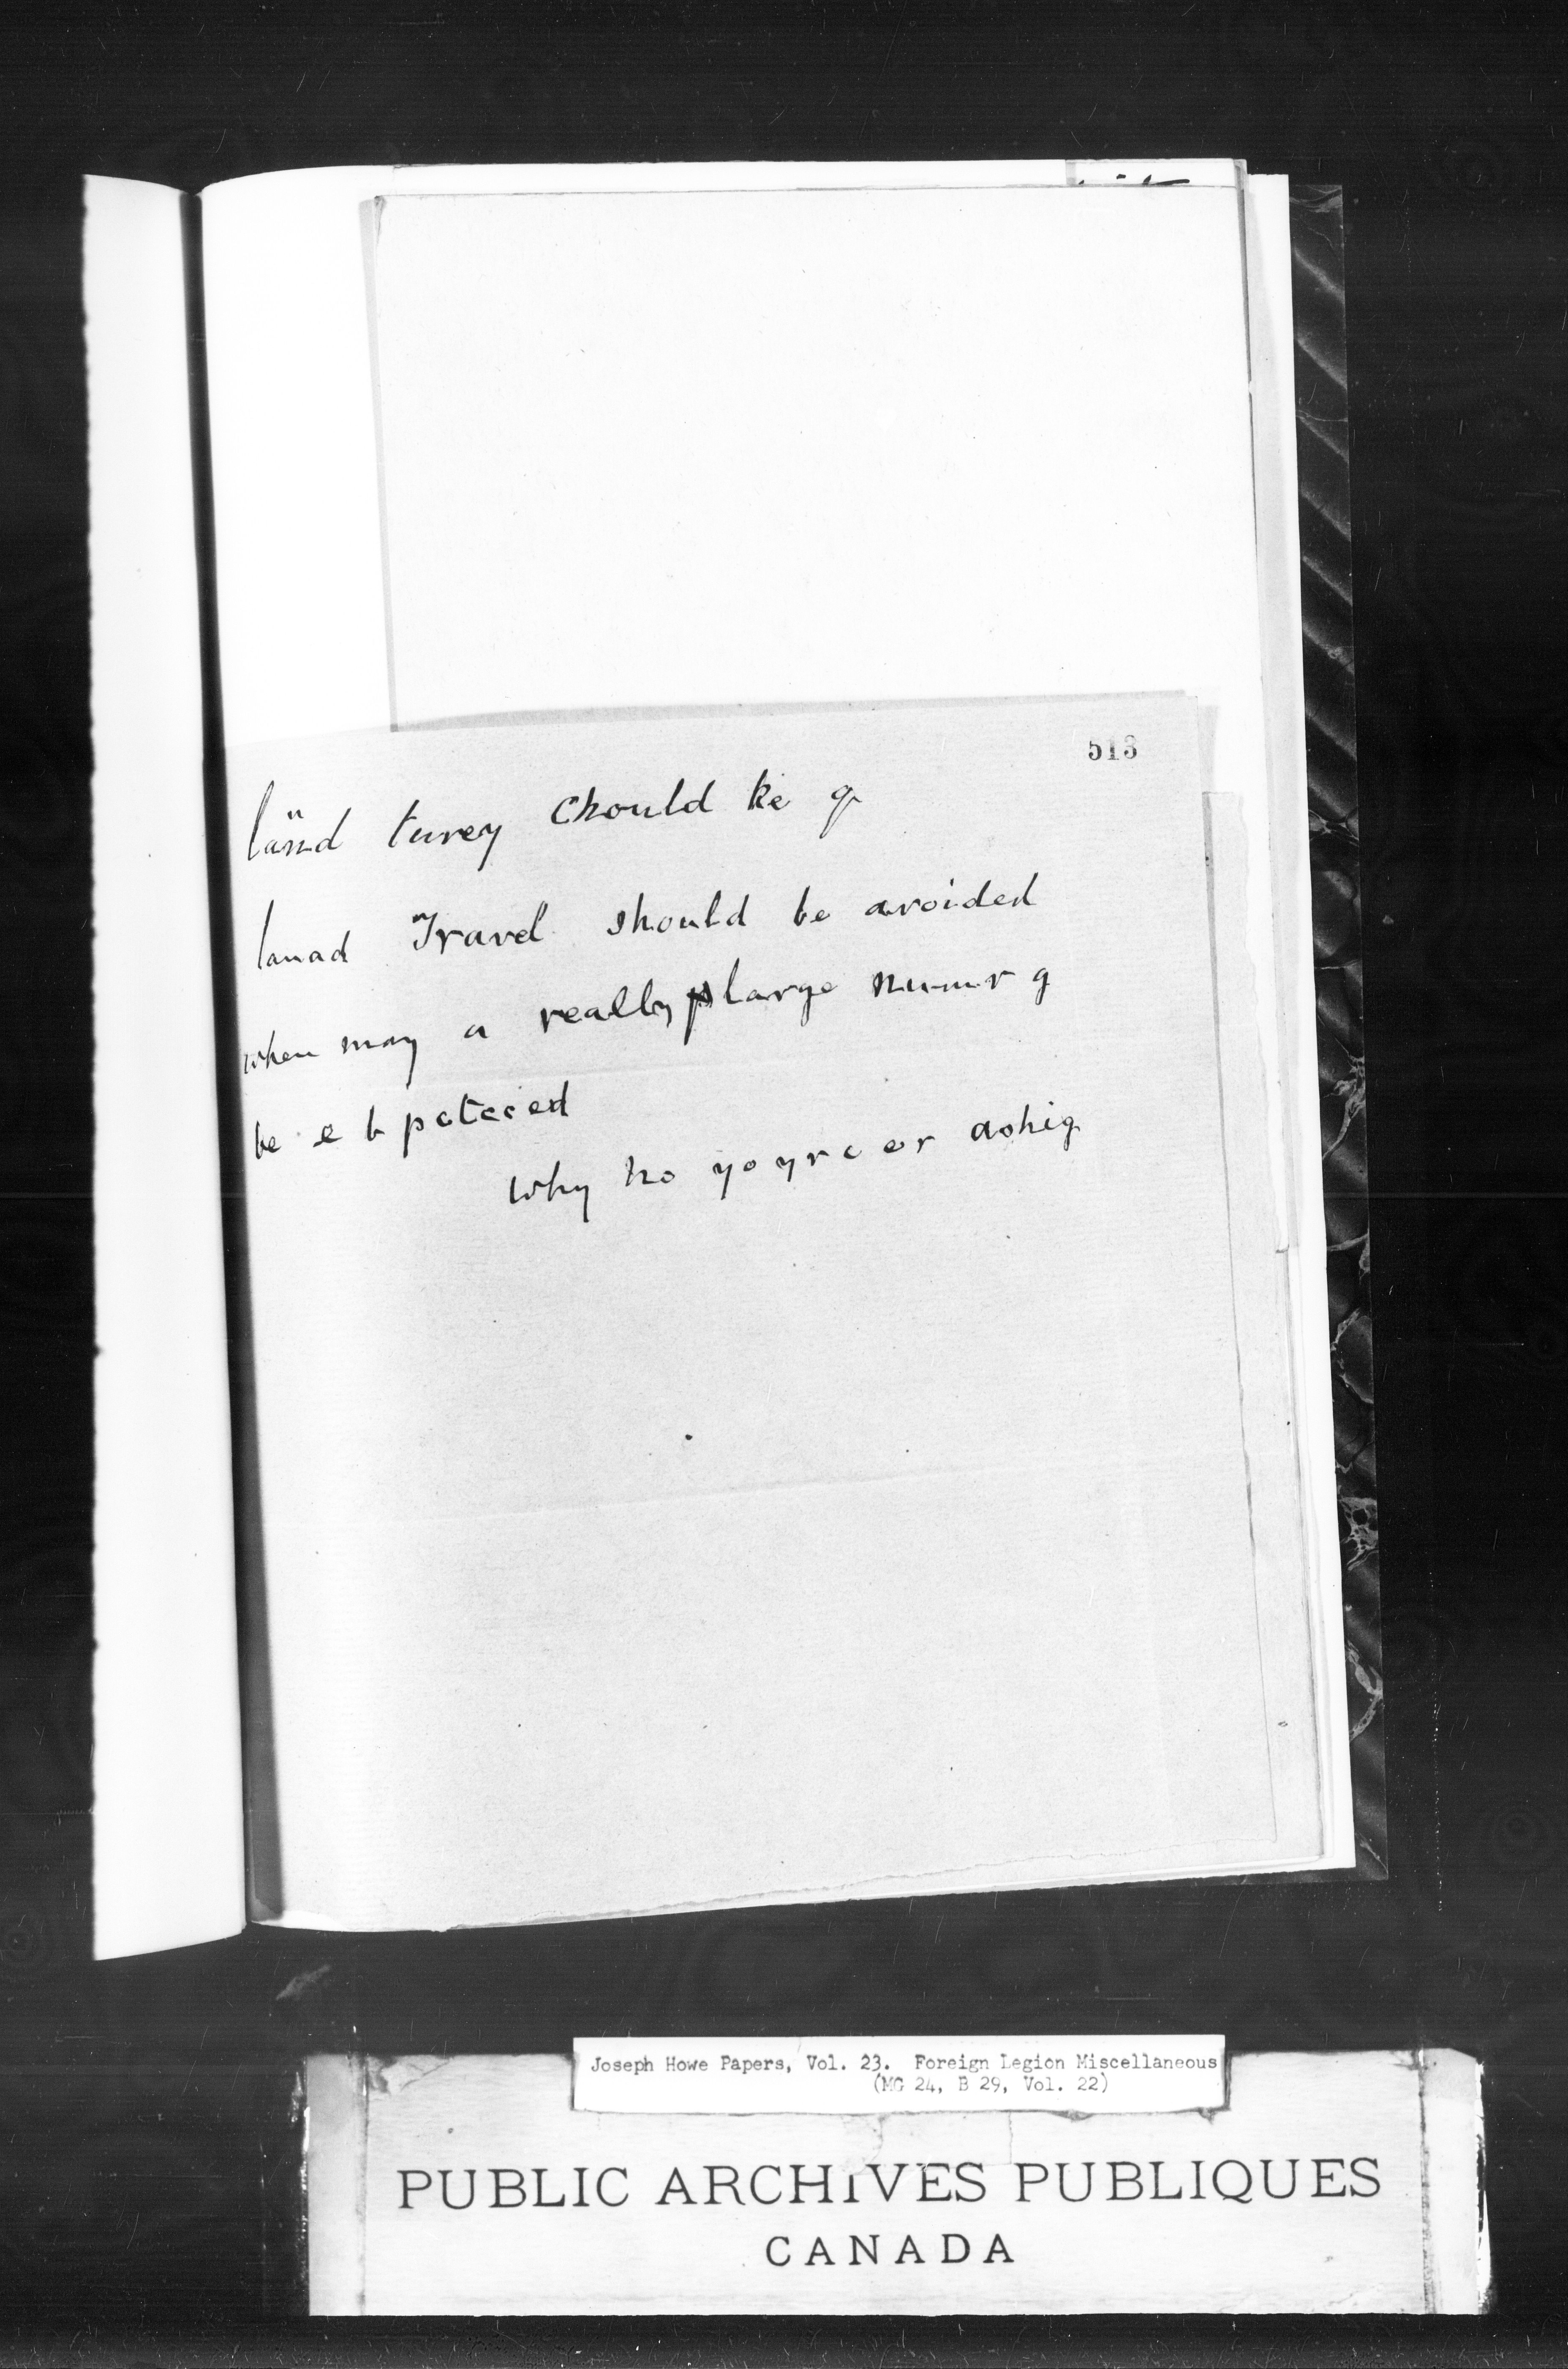 513
länd turey chould ke g
lanad Travel should be avoided
when may a really large numr g
be e b pctcced
Why no yoyrc er ashig
Joseph Howe Papers, Vol. 23. Foreign Legion Miscellaneous
(MG 24, B 29, Vol. 22)
PUBLIC ARCHIVES PUBLIQUES
CANADA